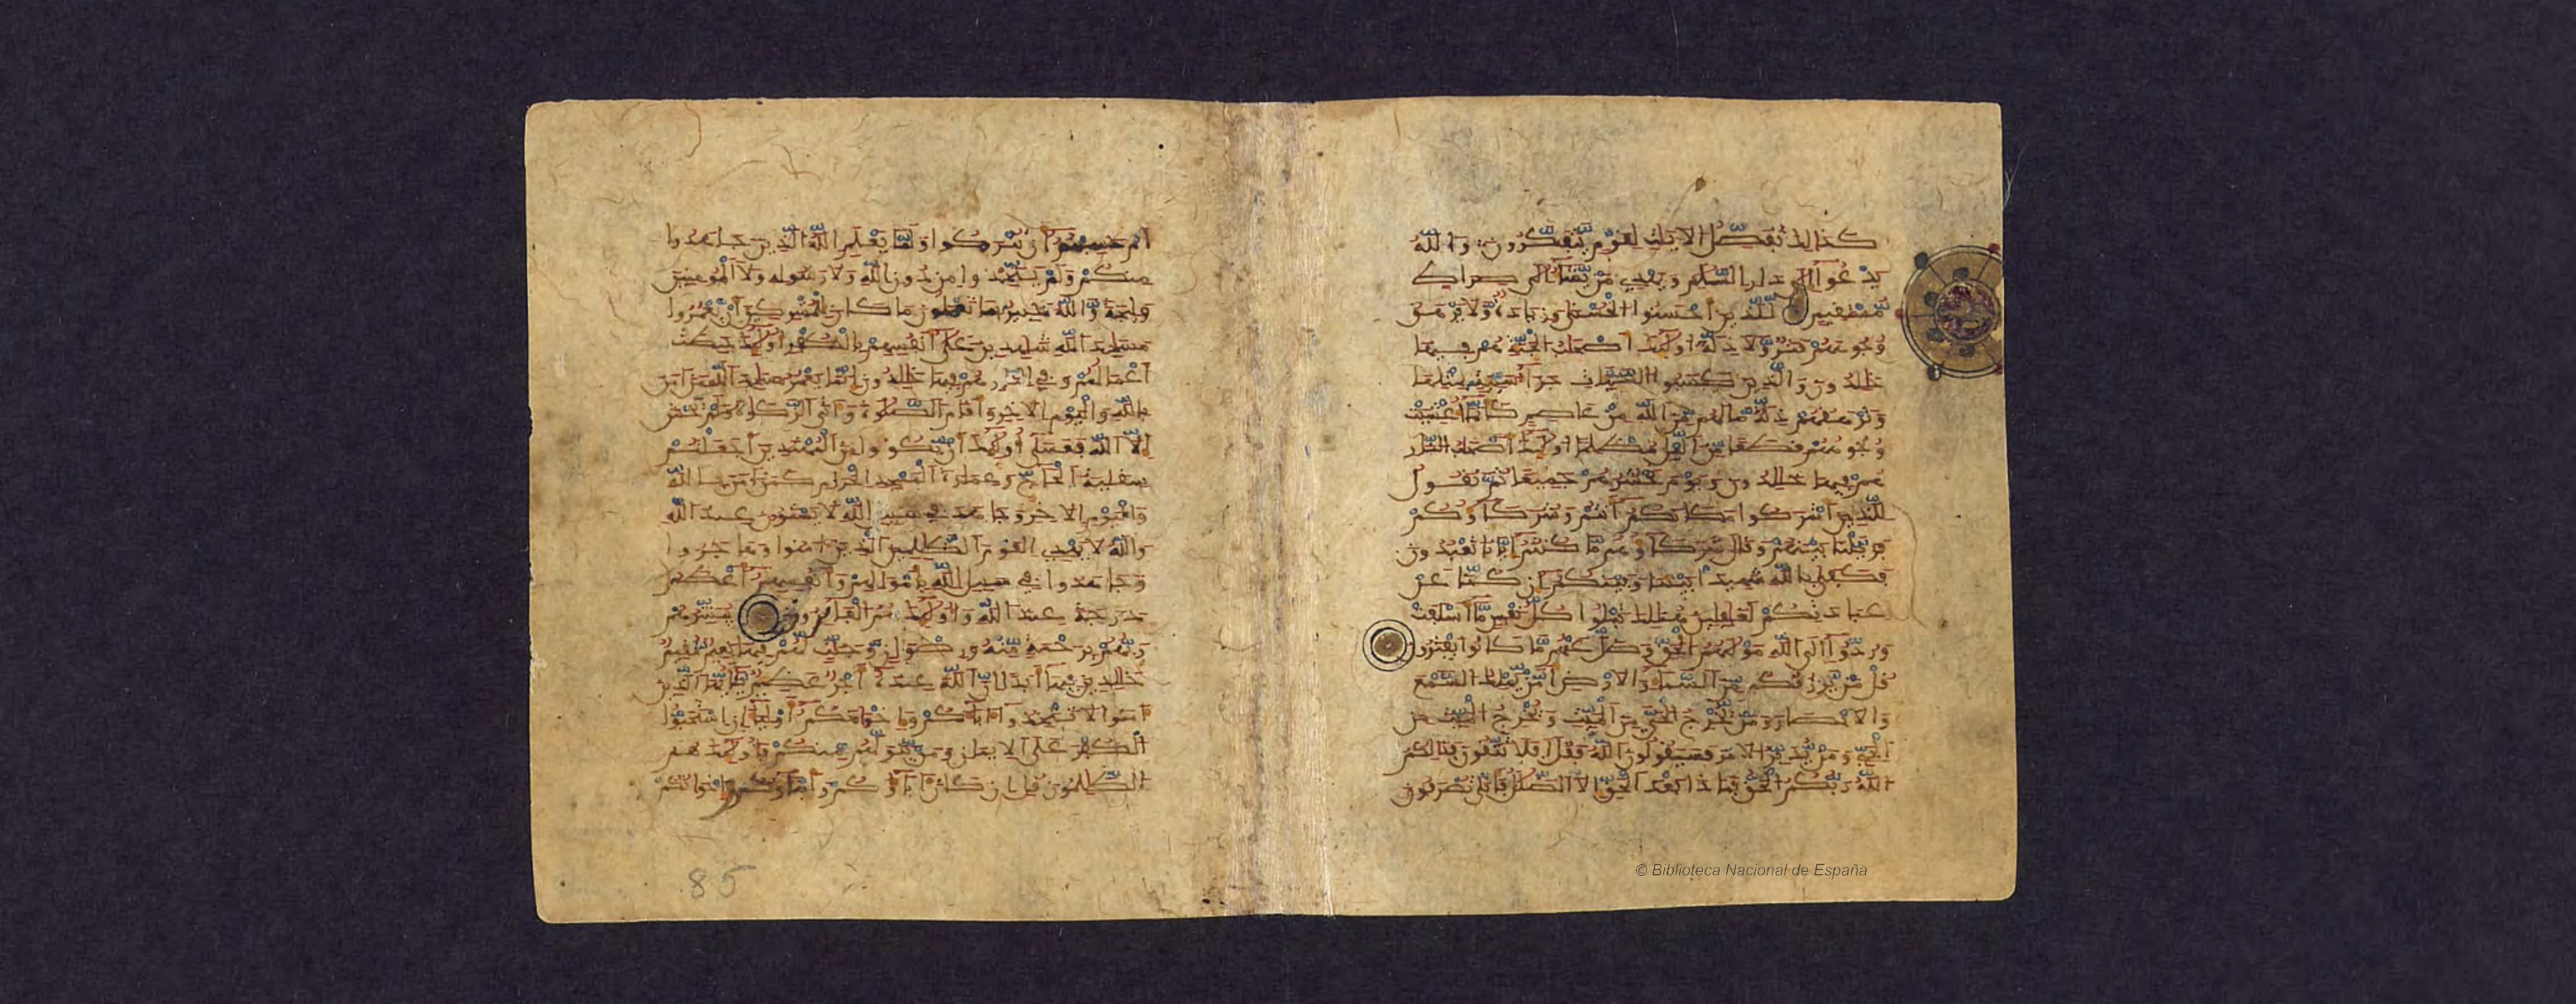 كذلك نفصل الايت لقوم يتفكرون والله
يدعوا الى دار السلم ويهدي من يشاء الى صراط
مستقيم للذين احسنوا الحسنى وزيادة ولا يرهق
وجوههم قتر ولا ذلة اولئك اصحاب الجنة هم فيها
خلدون والذين كسبوا السيئات جزاء سيئة بمثلها
وترهقهم ذلة ما لهم من الله من عاصم كانما اغشيت
وجوههم قطعا من اليل مظلما اولئك اصحاب النار
هم فيها خلدون ويوم نحشرهم جميعا ثم نقول
للذين اشركوا مكانكم انتم وشركاؤكم
فزيلنا بينهم وقال شركاؤهم ما كنتم ايانا تعبدون
فكفى بالله شهيدا بيننا وبينكم ان كنا عن
عبادتكم لغفلين هنالك تبلوا كل نفس ما اسلفت
وردوا الى الله موليهم الحق وضل عنهم ما كانوا يفترون
قل من يرزقكم من السماء والارض امن يملك السمع
والابصار ومن يخرج الحي من الميت ويخرج الميت من
الحي ومن يدبر الامر فسيقولون الله فقل افلا تتقون فذلكم
الله ربكم الحق فماذا بعد الحق الا الضلل فانى تصرفون
ام حسبتم ان تتركوا ولما يعلم الله الذين جاهدوا
منكم ولم يتخذوا من دون الله ولا رسوله ولا المومنين
وليجة والله خبير بما تعملون ما كان للمشركين ان يعمروا
مسجد الله شهدين على انفسهم بالكفر اولئك حبطت
اعمالهم وفي النار هم خلدون انما يعمر مسجد الله من امن
بالله واليوم الاخر واقام الصلوة واتى الزكوة ولم يخش
الا الله فعسى اولئك ان يكونوا من المهتدين اجعلتم
سقاية الحاج وعمارة المسجد الحرام كمن امن بالله
واليوم الاخر وجاهد في سبيل الله لا يستوون عند الله
والله لا يهدي القوم الظلمين الذين امنوا وهاجروا
وجاهدوا في سبيل الله باموالهم وانفسهم اعظم
درجة عند الله واولئك هم الفائزون يبشرهم
ربهم برحمة منه ورضوان وجنت لهم فيها نعيم مقيم
خلدين فيها ابدا ان الله عنده اجر عظيم يايها الذين
امنوا لا تتخذوا اباءكم واخوانكم اولياء ان استحبوا
الكفر على الايمان ومن يتولهم منكم فاولئك هم
الظلمون قل ان كان اباؤكم وابناؤكم واخوانكم
85
© Biblioteca Nacional de España